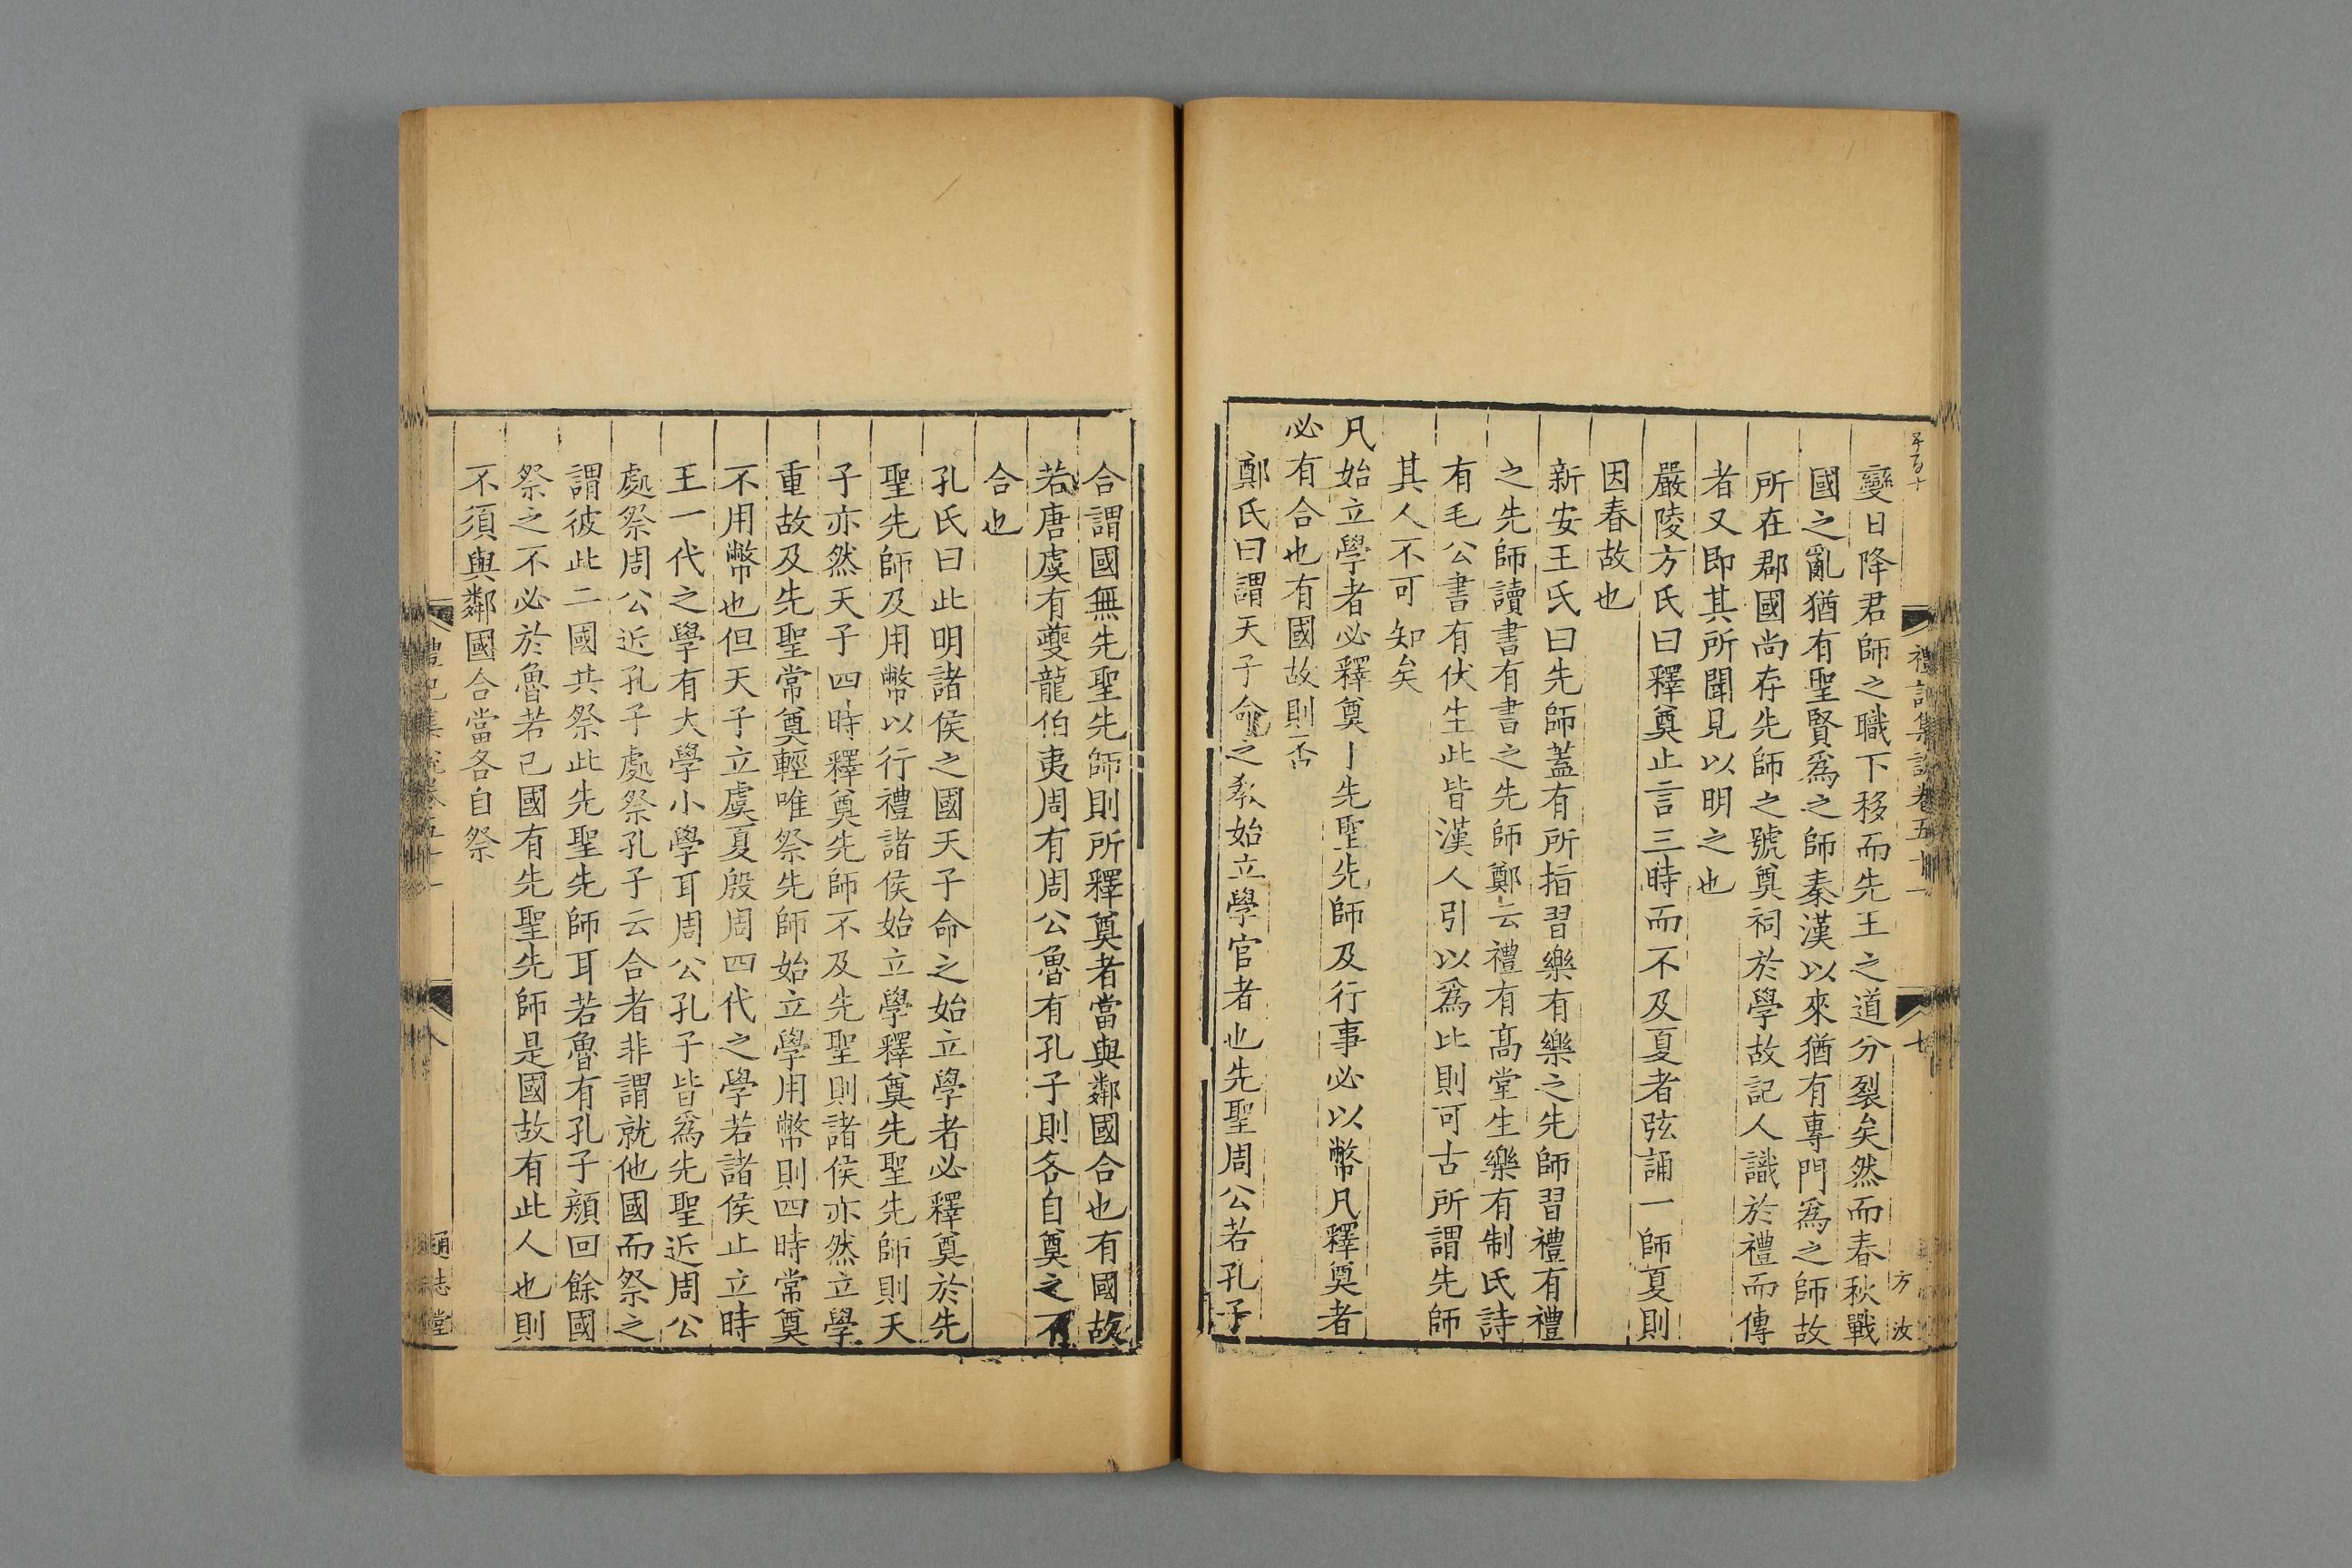 禮記集說卷五十一
七
方汝
變日降君師之職下移而先王之道分裂矣然而春秋戰
國之亂猶有聖賢爲之師秦漢以來猶有專門爲之師故
所在郡國尚存先師之號奠祠於學故記人識於禮而傳
者又即其所聞見以明之也
嚴陵方氏曰釋奠止言三時而不及夏者弦誦一師夏則
因春故也
新安王氏曰先師蓋有所指習樂有樂之先師習禮有禮
之先師讀書有書之先師鄭云禮有髙堂生樂有制氏詩
有毛公書有伏生此皆漢人引以爲比則可古所謂先師
其人不可知矣
凡始立學者必釋奠于先聖先師及行事必以幣凡釋奠者
必有合也有國故則否
鄭氏曰謂天子命之敎始立學官者也先聖周公若孔子
合謂國無先聖先師則所釋奠者當與鄰國合也有國故
若唐虞有夔龍伯夷周有周公魯有孔子則各自奠之不
合也
孔氏曰此明諸侯之國天子命之始立學者必釋奠於先
聖先師及用幣以行禮諸侯始立學釋奠先聖先師則天
子亦然天子四時釋奠先師不及先聖則諸侯亦然立學
重故及先聖常奠輕唯祭先師始立學用幣則四時常奠
不用幣也但天子立虞夏殷周四代之學若諸侯止立時
王一代之學有大學小學耳周公孔子皆爲先聖近周公
處祭周公近孔子處祭孔子云合者非謂就他國而祭之
謂彼此二國共祭此先聖先師耳若魯有孔子顔回餘國
祭之不必於魯若己國有先聖先師是國故有此人也則
不須與鄰國合當各自祭
禮記集說卷五十一
八
通志堂